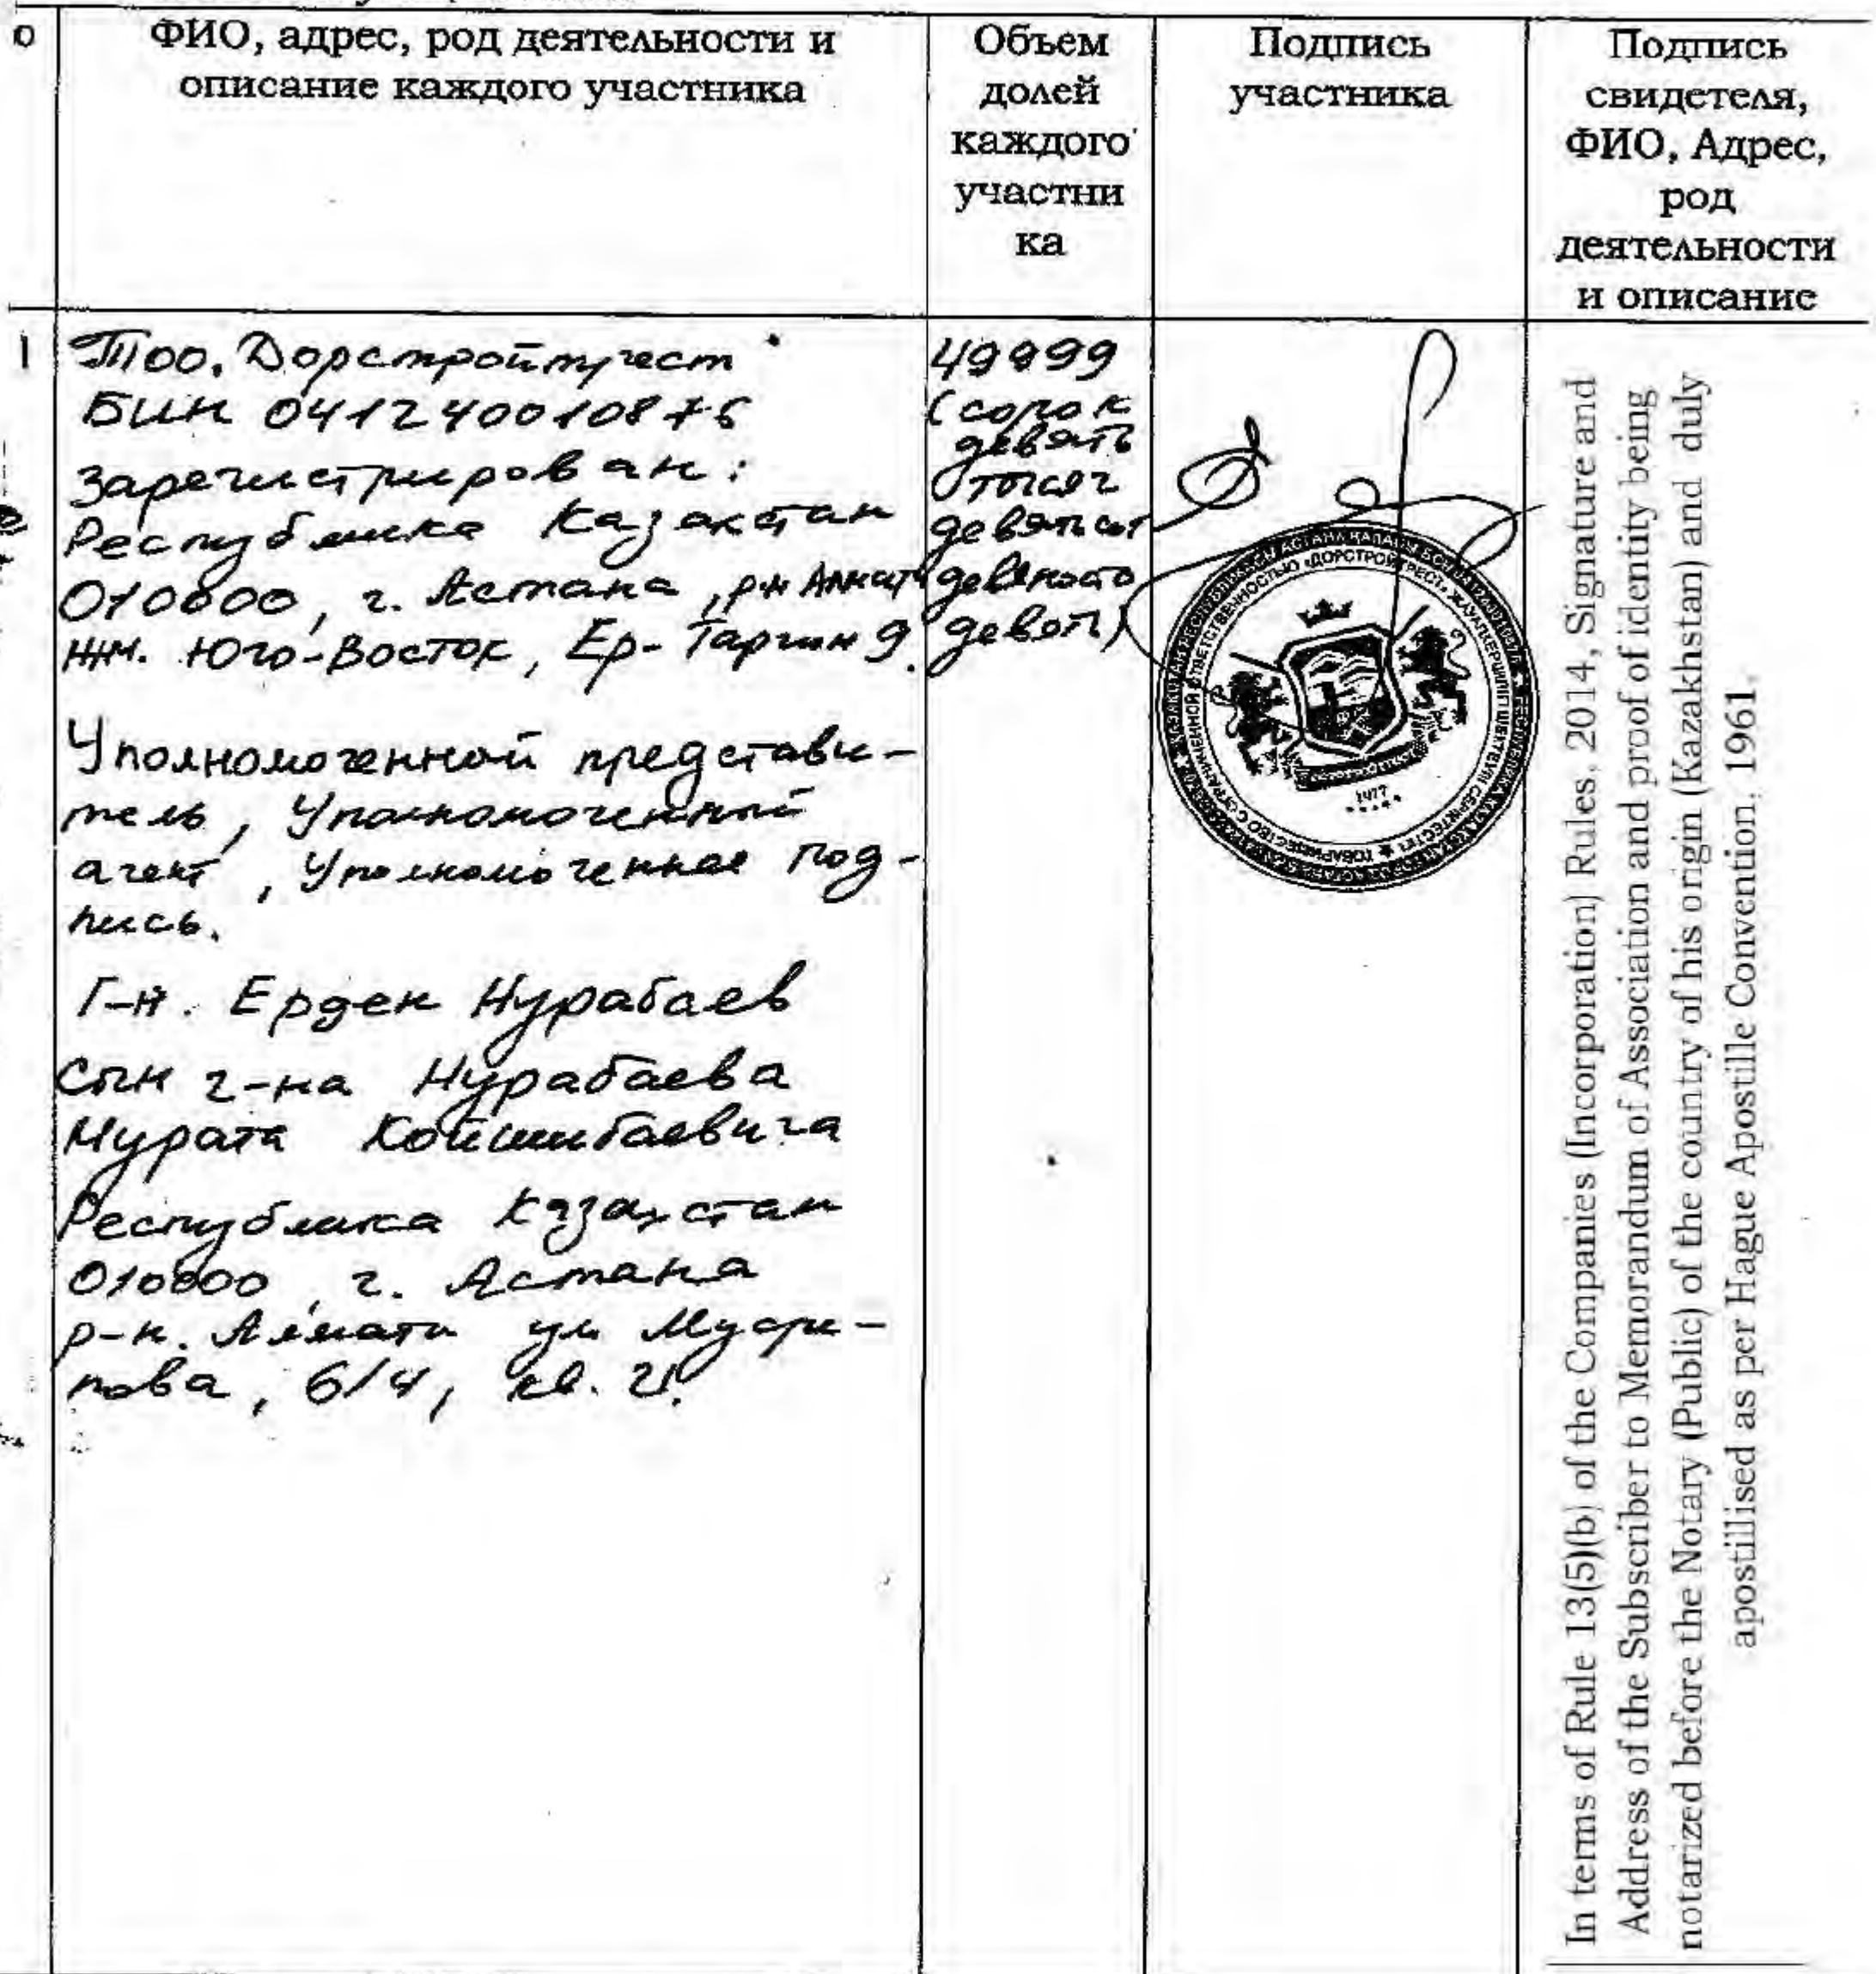 о
ФИО, адрес, род деятельности и
описание каждого участника
Объем
долей
каждого
участни
ка
Подпись
участника
Подпись
свидетеля,
ФИО, Адрес,
род
деятельности
и описание
1
Тоо. Дорстройтрест
БИН 041240010875
зарегистрирован:
Республика Казахстан
010000, г. Астана, р-н Алматы
жм. Юго-Восток, Ер-Таргын 9.
Уполномоченный представи-
тель, Уполномоченный
агент, Уполномоченная под-
пись.
Г-н. Ерден Нурабаев
Сын г-на Нурабаева
Мурата Койшибаевича
Республика Казахстан
010000, г. Астана
р-н. Алматы ул Мусре-
пова, 6/4, кв.
49999
(сорок
девять
тысяч
девятьсот
девяносто
девять)
ТОВАРИЩЕСТВО С ОГРАНИЧЕННОЙ ОТВЕТСТВЕННОСТЬЮ «ДОРСТРОЙТРЕСТ» ЖАУАПКЕРШІЛІГІ ШЕКТЕУЛІ СЕРІКТЕСТІГІ
In terms of Rule 13(5)(b) of the Companies (Incorporation) Rules, 2014, Signature and
Address of the Subscriber to Memorandum of Association and proof of identity being
notarized before the Notary (Public) of the country of his origin (Kazakhstan) and duly
apostillised as per Hague Apostille Convention, 1961.